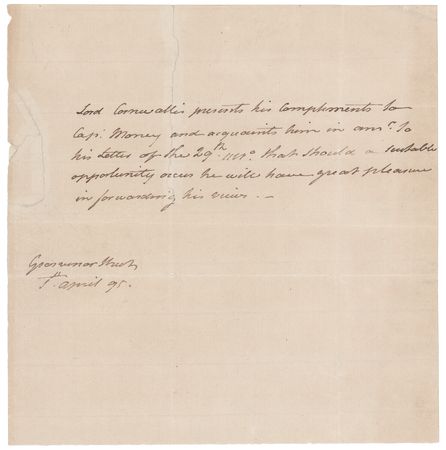 Lord Cornwallis presents his Compliments to
Capt. Money and acquaints him in ansr. to
his Letter of the 29th. ulto. that should a suitable
opportunity occur he will have great pleasure
in forwarding his views. —
Grosvenor Street
April 95.